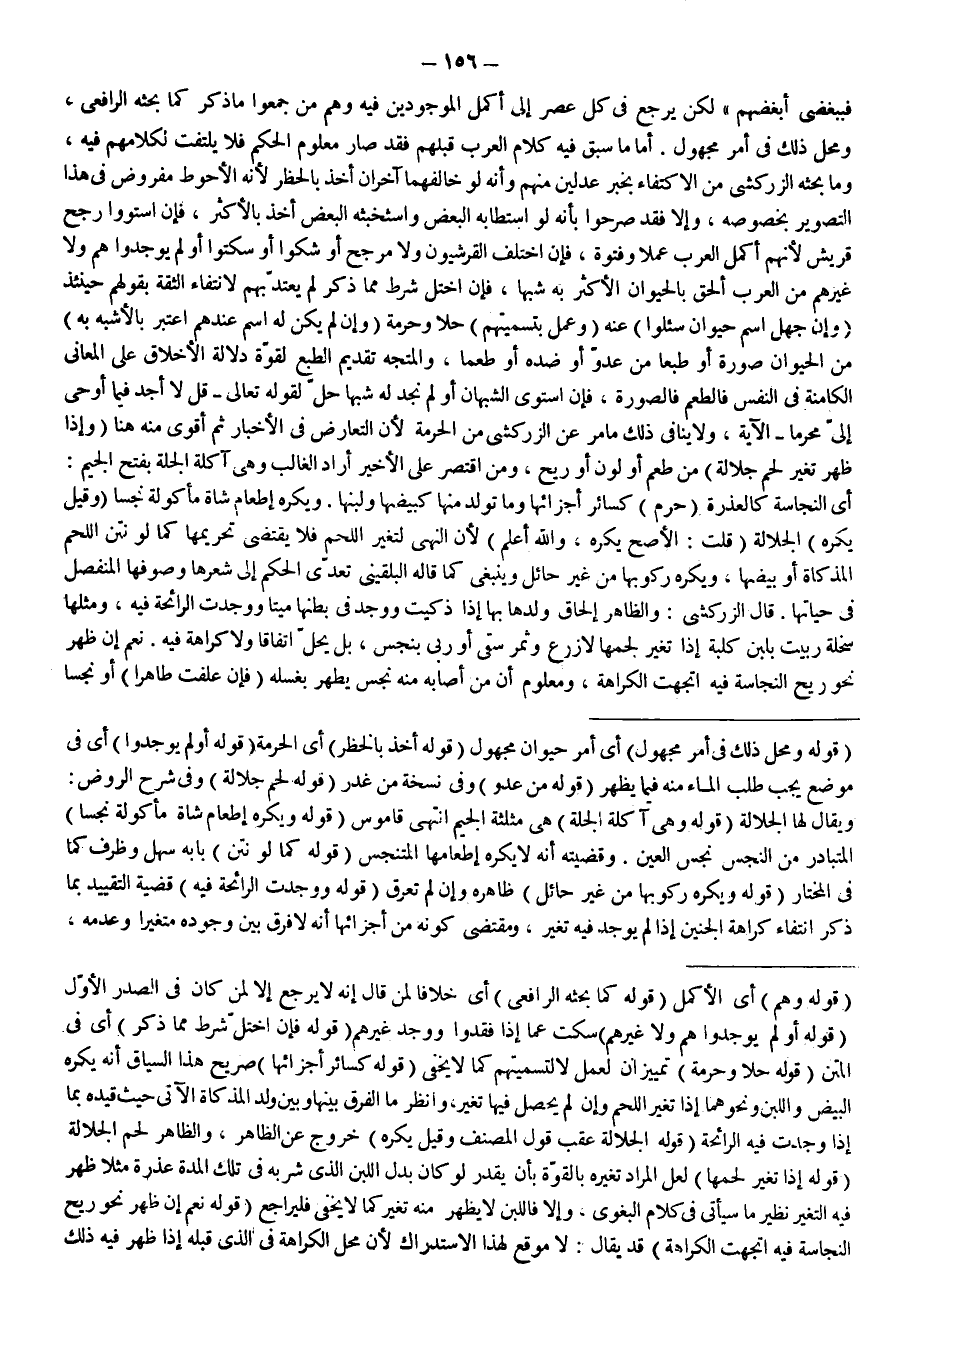 – ١٥٦ –
فببغضى أبغضهم » لكن يرجع فى كل عصر إلى أكمل الموجودين فيه وهم من جمعوا ماذكر كما بحثه الرافعى ،
ومحل ذلك فى أمر مجهول . أما ما سبق فيه كلام العرب قبلهم فقد صار معلوم الحكم فلا يلتفت لكلامهم فيه ،
وما بحثه الزركشى من الاكتفاء بخبر عدلين منهم وأنه لو خالفهما آخران أخذ بالحظر لأنه الأحوط مفروض فى هذا
التصوير بخصوصه ، وإلا فقد صرحوا بأنه لو استطابه البعض واستخبثه البعض أخذ بالأكثر ، فإن استووا رجح
قريش لأنهم أكمل العرب عملا وفتوة ، فإن اختلف القرشيون ولا مرجح أو شكوا أو سكتوا أو لم يوجدوا هم ولا
غيرهم من العرب ألحق بالحيوان الأكثر به شبها ، فإن اختل شرط مما ذكر لم يعتدّ بهم لانتفاء الثقة بقولهم حينئذ
( وإن جهل اسم حيوان سئلوا ) عنه ( وعمل بتسميتهم ) حلا وحرمة ( وإن لم يكن له اسم عندهم اعتبر بالأشبه به )
من الحيوان صورة أو طبعا من عدوّ أو ضده أو طعما ، والمتجه تقديم الطبع لقوّة دلالة الأخلاق على المعانى
الكامنة فى النفس فالطعم فالصورة ، فإن استوى الشبهان أو لم نجد له شبها حلّ لقوله تعالى ـ قل لا أجد فيما أوحى
إلىّ محرما ـ الآية ، ولاينافى ذلك مامر عن الزركشى من الحرمة لأن التعارض فى الأخبار ثم أقوى منه هنا ( وإذا
ظهر تغير لحم جلالة ) من طعم أو لون أو ريح ، ومن اقتصر على الأخير أراد الغالب وهى آكلة الجلة بفتح الجيم :
أى النجاسة كالعذرة ( حرم ) كسائر أجزائها وما تولد منها كبيضها ولبنها . ويكره إطعام شاة مأكولة نجسا ( وقيل
يكره ) الجلالة ( قلت : الأصح يكره ، والله أعلم ) لأن النهى لتغير اللحم فلا يقتضى تحريمها كما لو نتن اللحم
المذكاة أو بيضها ، ويكره ركوبها من غير حائل وينبغى كما قاله البلقينى تعدّى الحكم إلى شعرها وصوفها المنفصل
فى حياتها . قال الزركشى : والظاهر إلحاق ولدها بها إذا ذكيت ووجد فى بطنها ميتا ووجدت الرائحة فيه ، ومثلها
سخلة ربيت بلبن كلبة إذا تغير لحمها لازرع وثمر سقى أو ربى بنجس ، بل يحلّ اتفاقا ولا كراهة فيه . نعم إن ظهر
نحو ريح النجاسة فيه اتجهت الكراهة ، ومعلوم أن من أصابه منه نجس يطهر بغسله ( فإن علفت طاهرا ) أو نجسا
( قوله ومحل ذلك فى أمر مجهول) أى أمر حيوان مجهول ( قوله أخذ بالحظر) أى الحرمة ( قوله أولم يوجدوا ) أى فى
موضع يجب طلب المـاء منه فيما يظهر ( قوله من عدو ) وفى نسخة من غدر ( قوله لحم جلالة ) وفى شرح الروض :
ويقال لها الجلالة ( قوله وهى آكلة الجلة ) هى مثلثة الجيم انتهى قاموس ( قوله ويكره إطعام شاة مأكولة نجسا )
المتبادر من النجس نجس العين . وقضيته أنه لايكره إطعامها المتنجس ( قوله كما لو نتن ) بابه سهل وظرف كما
فى المختار ( قوله ويكره ركوبها من غير حائل ) ظاهره وإن لم تعرق ( قوله ووجدت الرائحة فيه ) قضية التقييد بما
ذكر انتفاء كراهة الجنين إذا لم يوجد فيه تغير ، ومقتضى كونه من أجزائها أنه لافرق بين وجوده متغيرا وعدمه ،
( قوله وهم ) أى الأكمل ( قوله كما بحثه الرافعى ) أى خلافا لمن قال إنه لايرجع إلا لمن كان فى الصدر الأوّل
( قوله أو لم يوجدوا هم ولا غيرهم) سكت عما إذا فقدوا ووجد غيرهم ( قوله فإن اختلّ شرط مما ذكر ) أى فى
المتن ( قوله حلا وحرمة ) تمييزان لعمل لالتسميتهم كما لايخفى ( قوله كسائر أجزائها ) صريح هذا السياق أنه يكره
البيض واللبن ونحوهما إذا تغير اللحم وإن لم يحصل فيها تغير، وانظر ما الفرق بينها وبين ولد المذكاة الآتى حيث قيده بما
إذا وجدت فيه الرائحة ( قوله الجلالة عقب قول المصنف وقيل يكره ) خروج عن الظاهر ، والظاهر لحم الجلالة
( قوله إذا تغير لحمها ) لعل المراد تغيره بالقوّة بأن يقدر لو كان بدل اللبن الذى شربه فى تلك المدة عذرة مثلا ظهر
فيه التغير نظير ما سيأتى فى كلام البغوى ، وإلا فاللبن لايظهر منه تغير كما لايخفى فليراجع ( قوله نعم إن ظهر نحو ريح
النجاسة فيه اتجهت الكراهة ) قد يقال : لا موقع لهذا الاستدراك لأن محل الكراهة فى الذى قبله إذا ظهر فيه ذلك